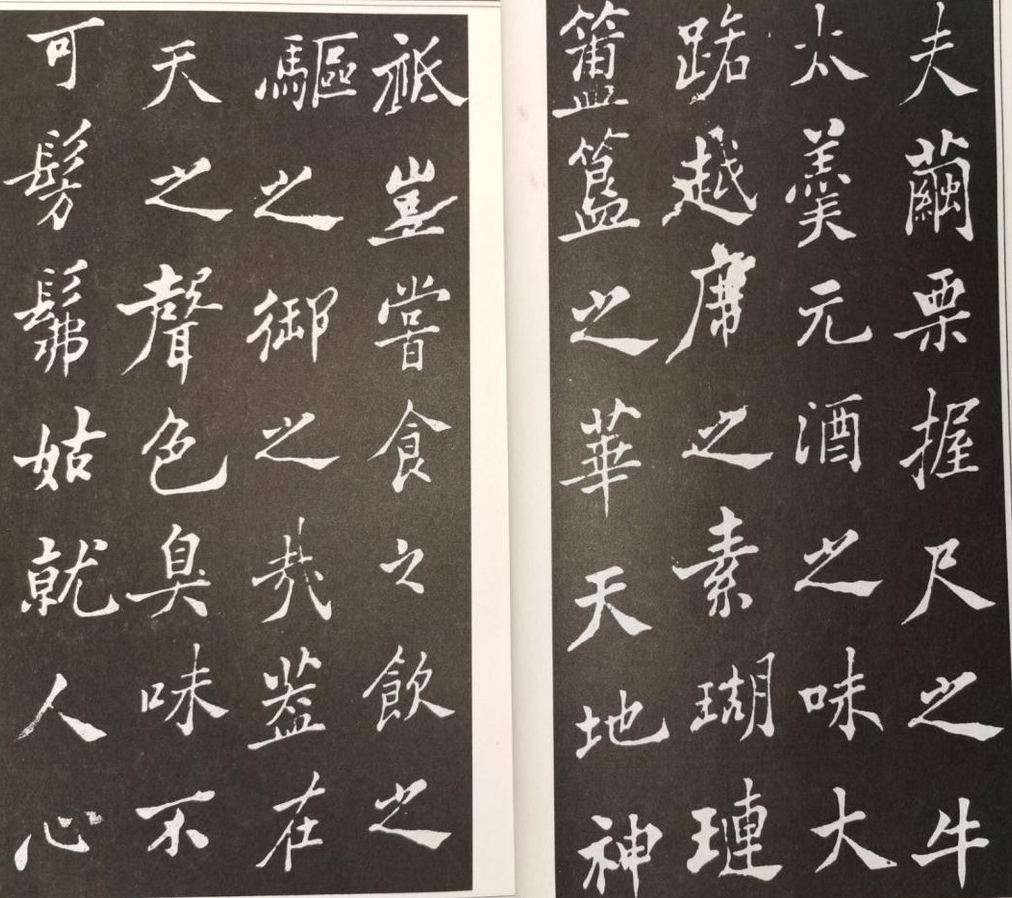 夫繭栗握尺之牛
太羹元酒之味大
路越席之素瑚璉
簠簋之華天地神
祇豈嘗食之飲之
驅之御之哉蓋在
天之聲色臭味不
可髣髴姑就人心